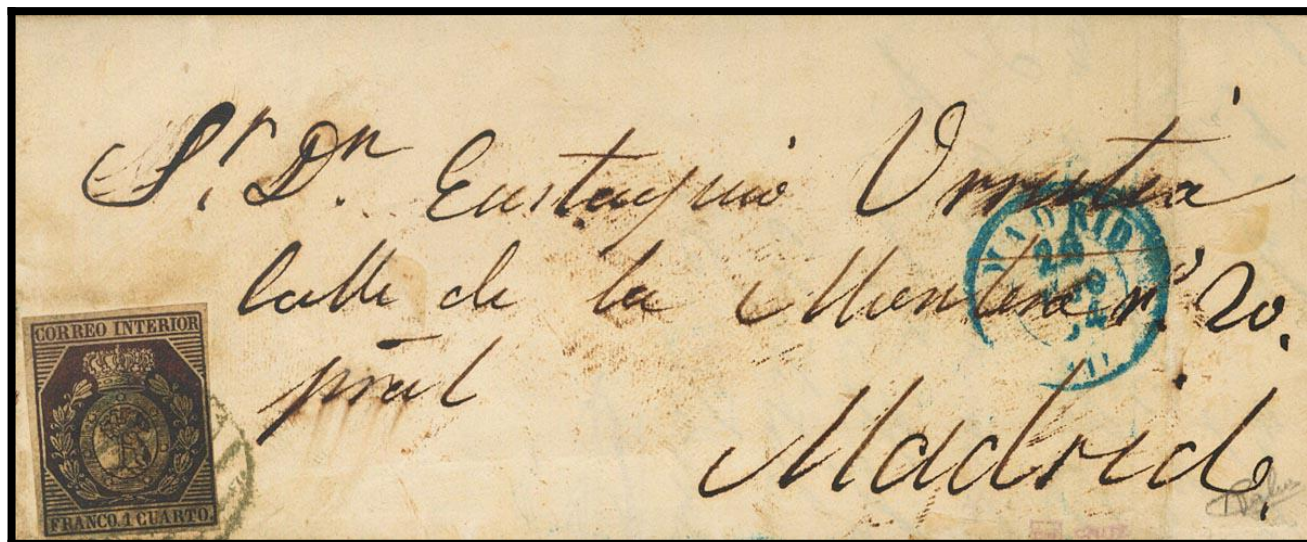 Sr. Dn. Eustaquio Urrutia
Calle de la Montera nº 20.
pral
Madrid.
MADRID
CORREO INTERIOR
FRANCO. 1 CUARTO.